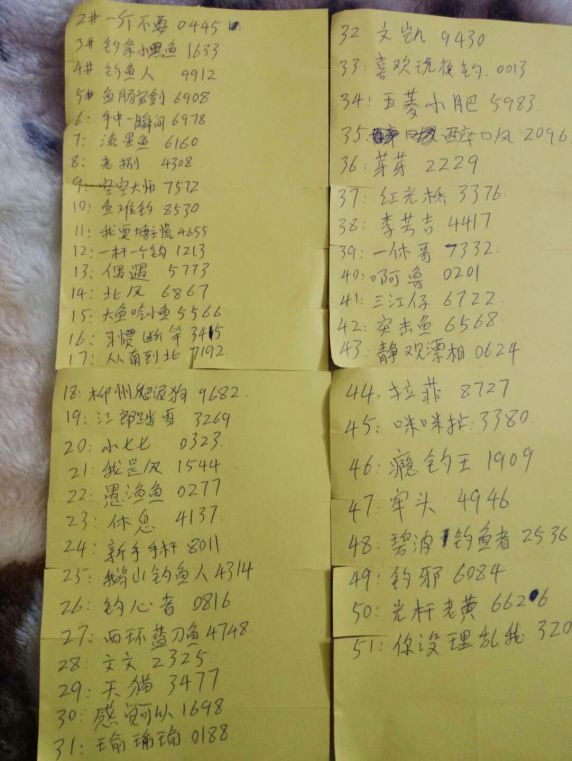 2# 一介不要 0445
3# 钓条小黑鱼 1633
4# 钓鱼人 9912
5# 鱼肠宝剑 6908
6: 手中一瞬间 6978
7: 流墨鱼 6160
8: 老捌 4308
9: 空空大师 7572
10: 鱼难钓 8530
11: 我要 4655
12: 一杆一个钩 1213
13: 偶遇 5773
14: 北风 6867
15: 大鱼吃小鱼 5566
16: 习惯断竿 3415
17: 从南到北 7192
18: 柳州狗 9682
19: 江郎踏雪 3269
20: 小七七 0323
21: 我是风 1544
22: 愚渔鱼 0277
23: 休息 4137
24: 新手手杆 8011
25: 鹅山钓鱼人 4314
26: 钓心者 0816
27: 西环蓝刀鱼 4748
28: 文文 2325
29: 天猫 3477
30: 感可以 1698
31: 瑜瑜瑜 0188
32 文凯 9430
33: 喜欢玩夜钓 0013
34: 五菱小肥 5983
35: 醉口风 2096
36: 芽芽 2229
37: 红光桥 3376
38: 李芳吉 4417
39: 一休哥 7332
40: 啊鲁 0201
41: 三江仔 6722
42: 突击鱼 6568
43: 静观漂相 0624
44: 拉菲 8727
45: 咪咪扯 3380
46: 瘾钓王 1909
47: 牢头 4946
48: 碧波钓鱼者 2536
49: 钓邪 6084
50: 光杆老黄 6626
51: 你没理乱我 320